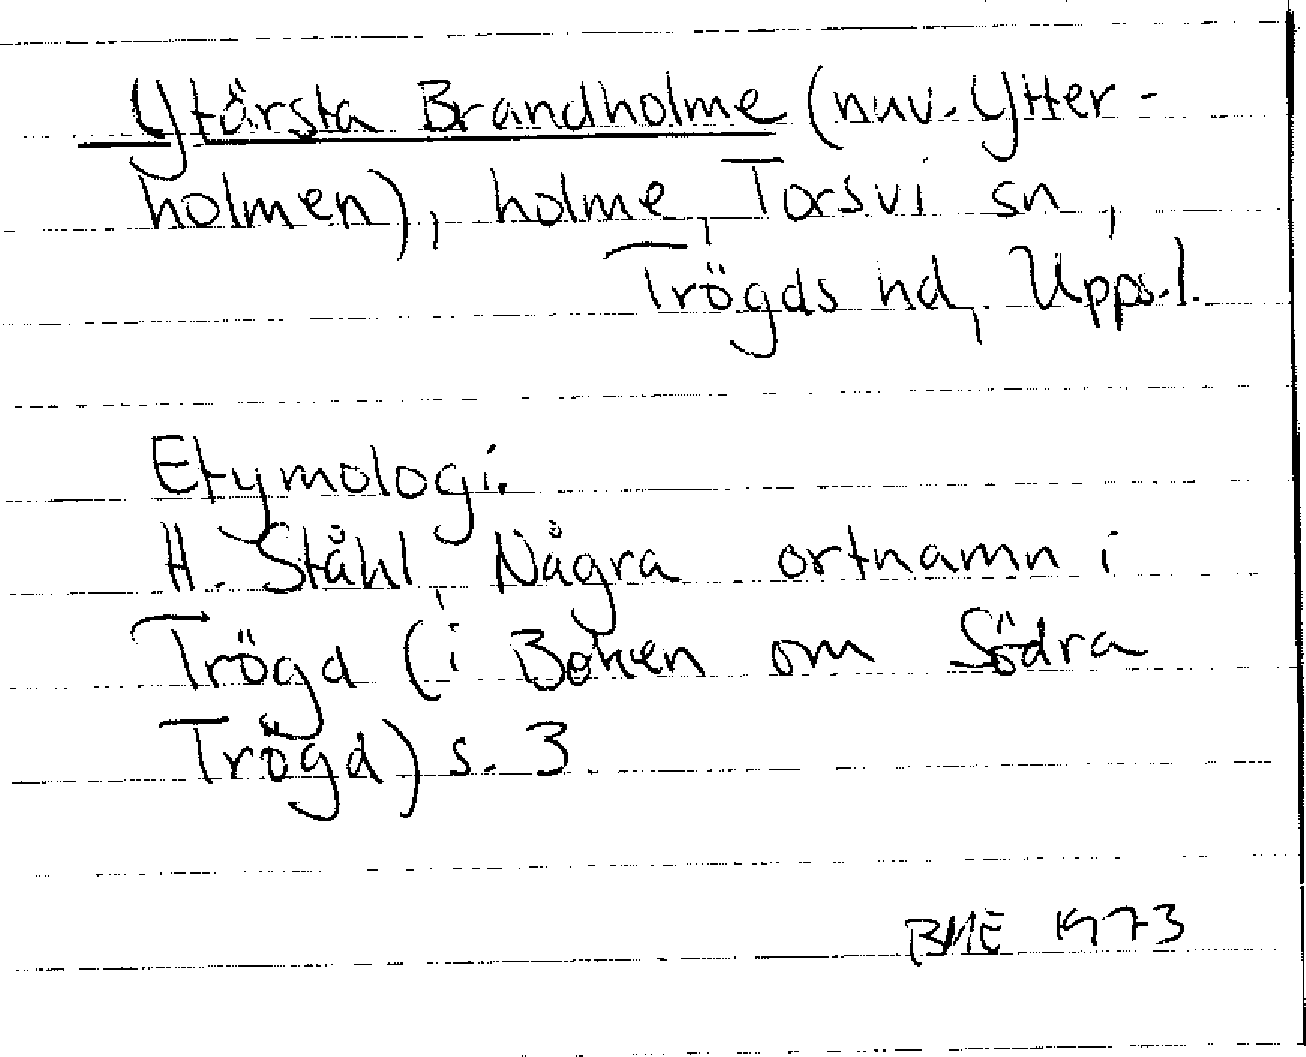 Ytärsta Brandholme (nuv. Ytter-
holmen), holme, Torsvi sn,
Trögds hd, Upps.l.
Etymologi.
H. Ståhl, Några ortnamn i
Trögd (i Boken om Södra
Trögd) s. 3.
BME 1973